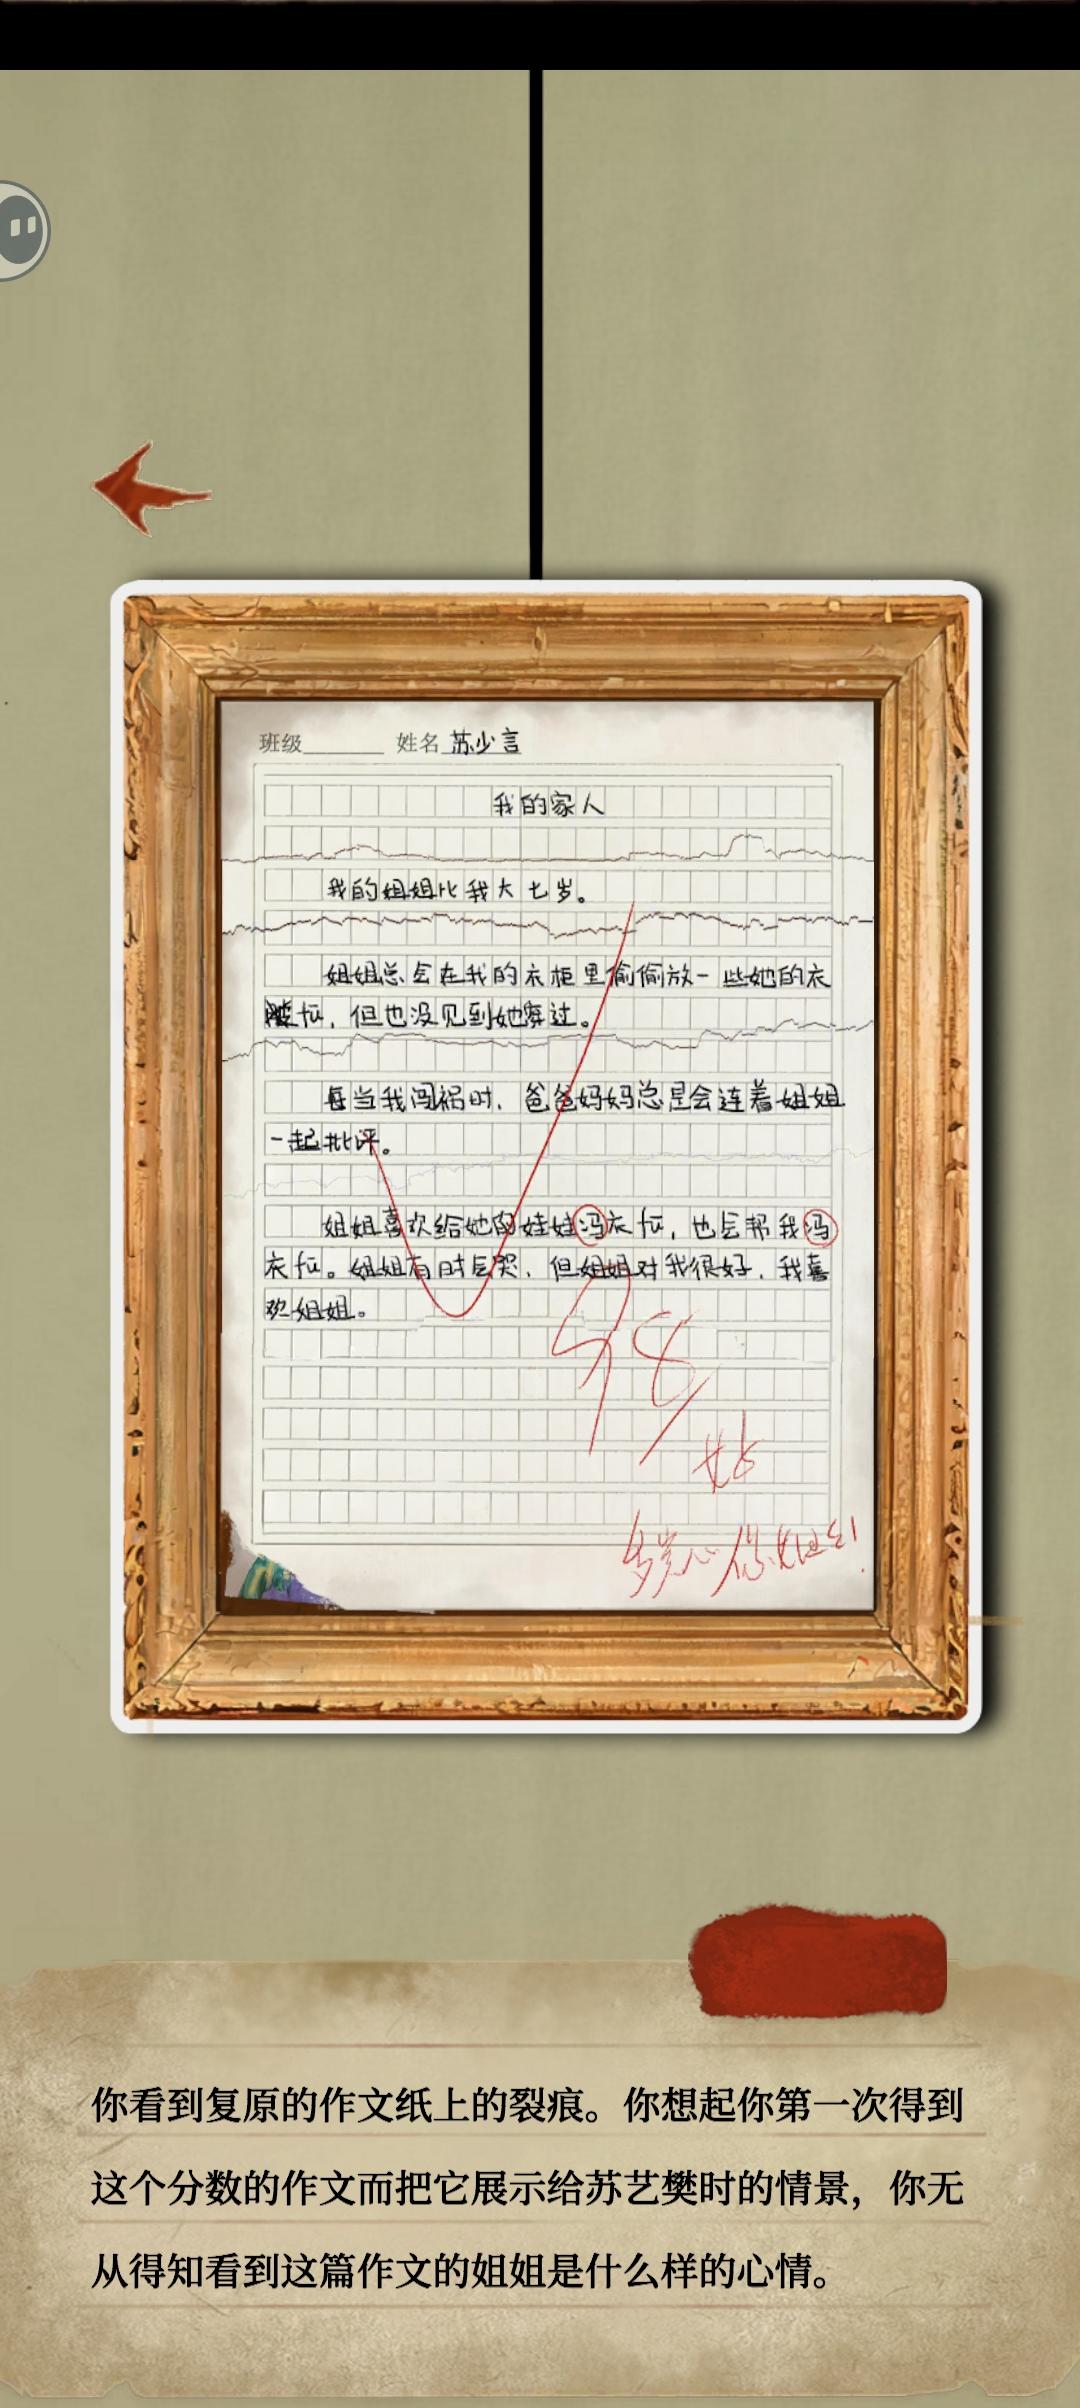 班级______ 姓名 苏少言
我的家人
我的姐姐比我大七岁。
姐姐总会在我的衣柜里偷偷放一些她的衣
服, 但也没见到她穿过。
每当我闯祸时, 爸爸妈妈总是会连着姐姐
一起批评。
姐姐喜欢给她的娃娃冯衣, 也会帮我冯
衣。姐姐有时会哭, 但姐姐对我很好, 我喜
欢姐姐。
98
好
多关心你姐姐!
你看到复原的作文纸上的裂痕。你想起你第一次得到
这个分数的作文而把它展示给苏艺樊时的情景，你无
从得知看到这篇作文的姐姐是什么样的心情。